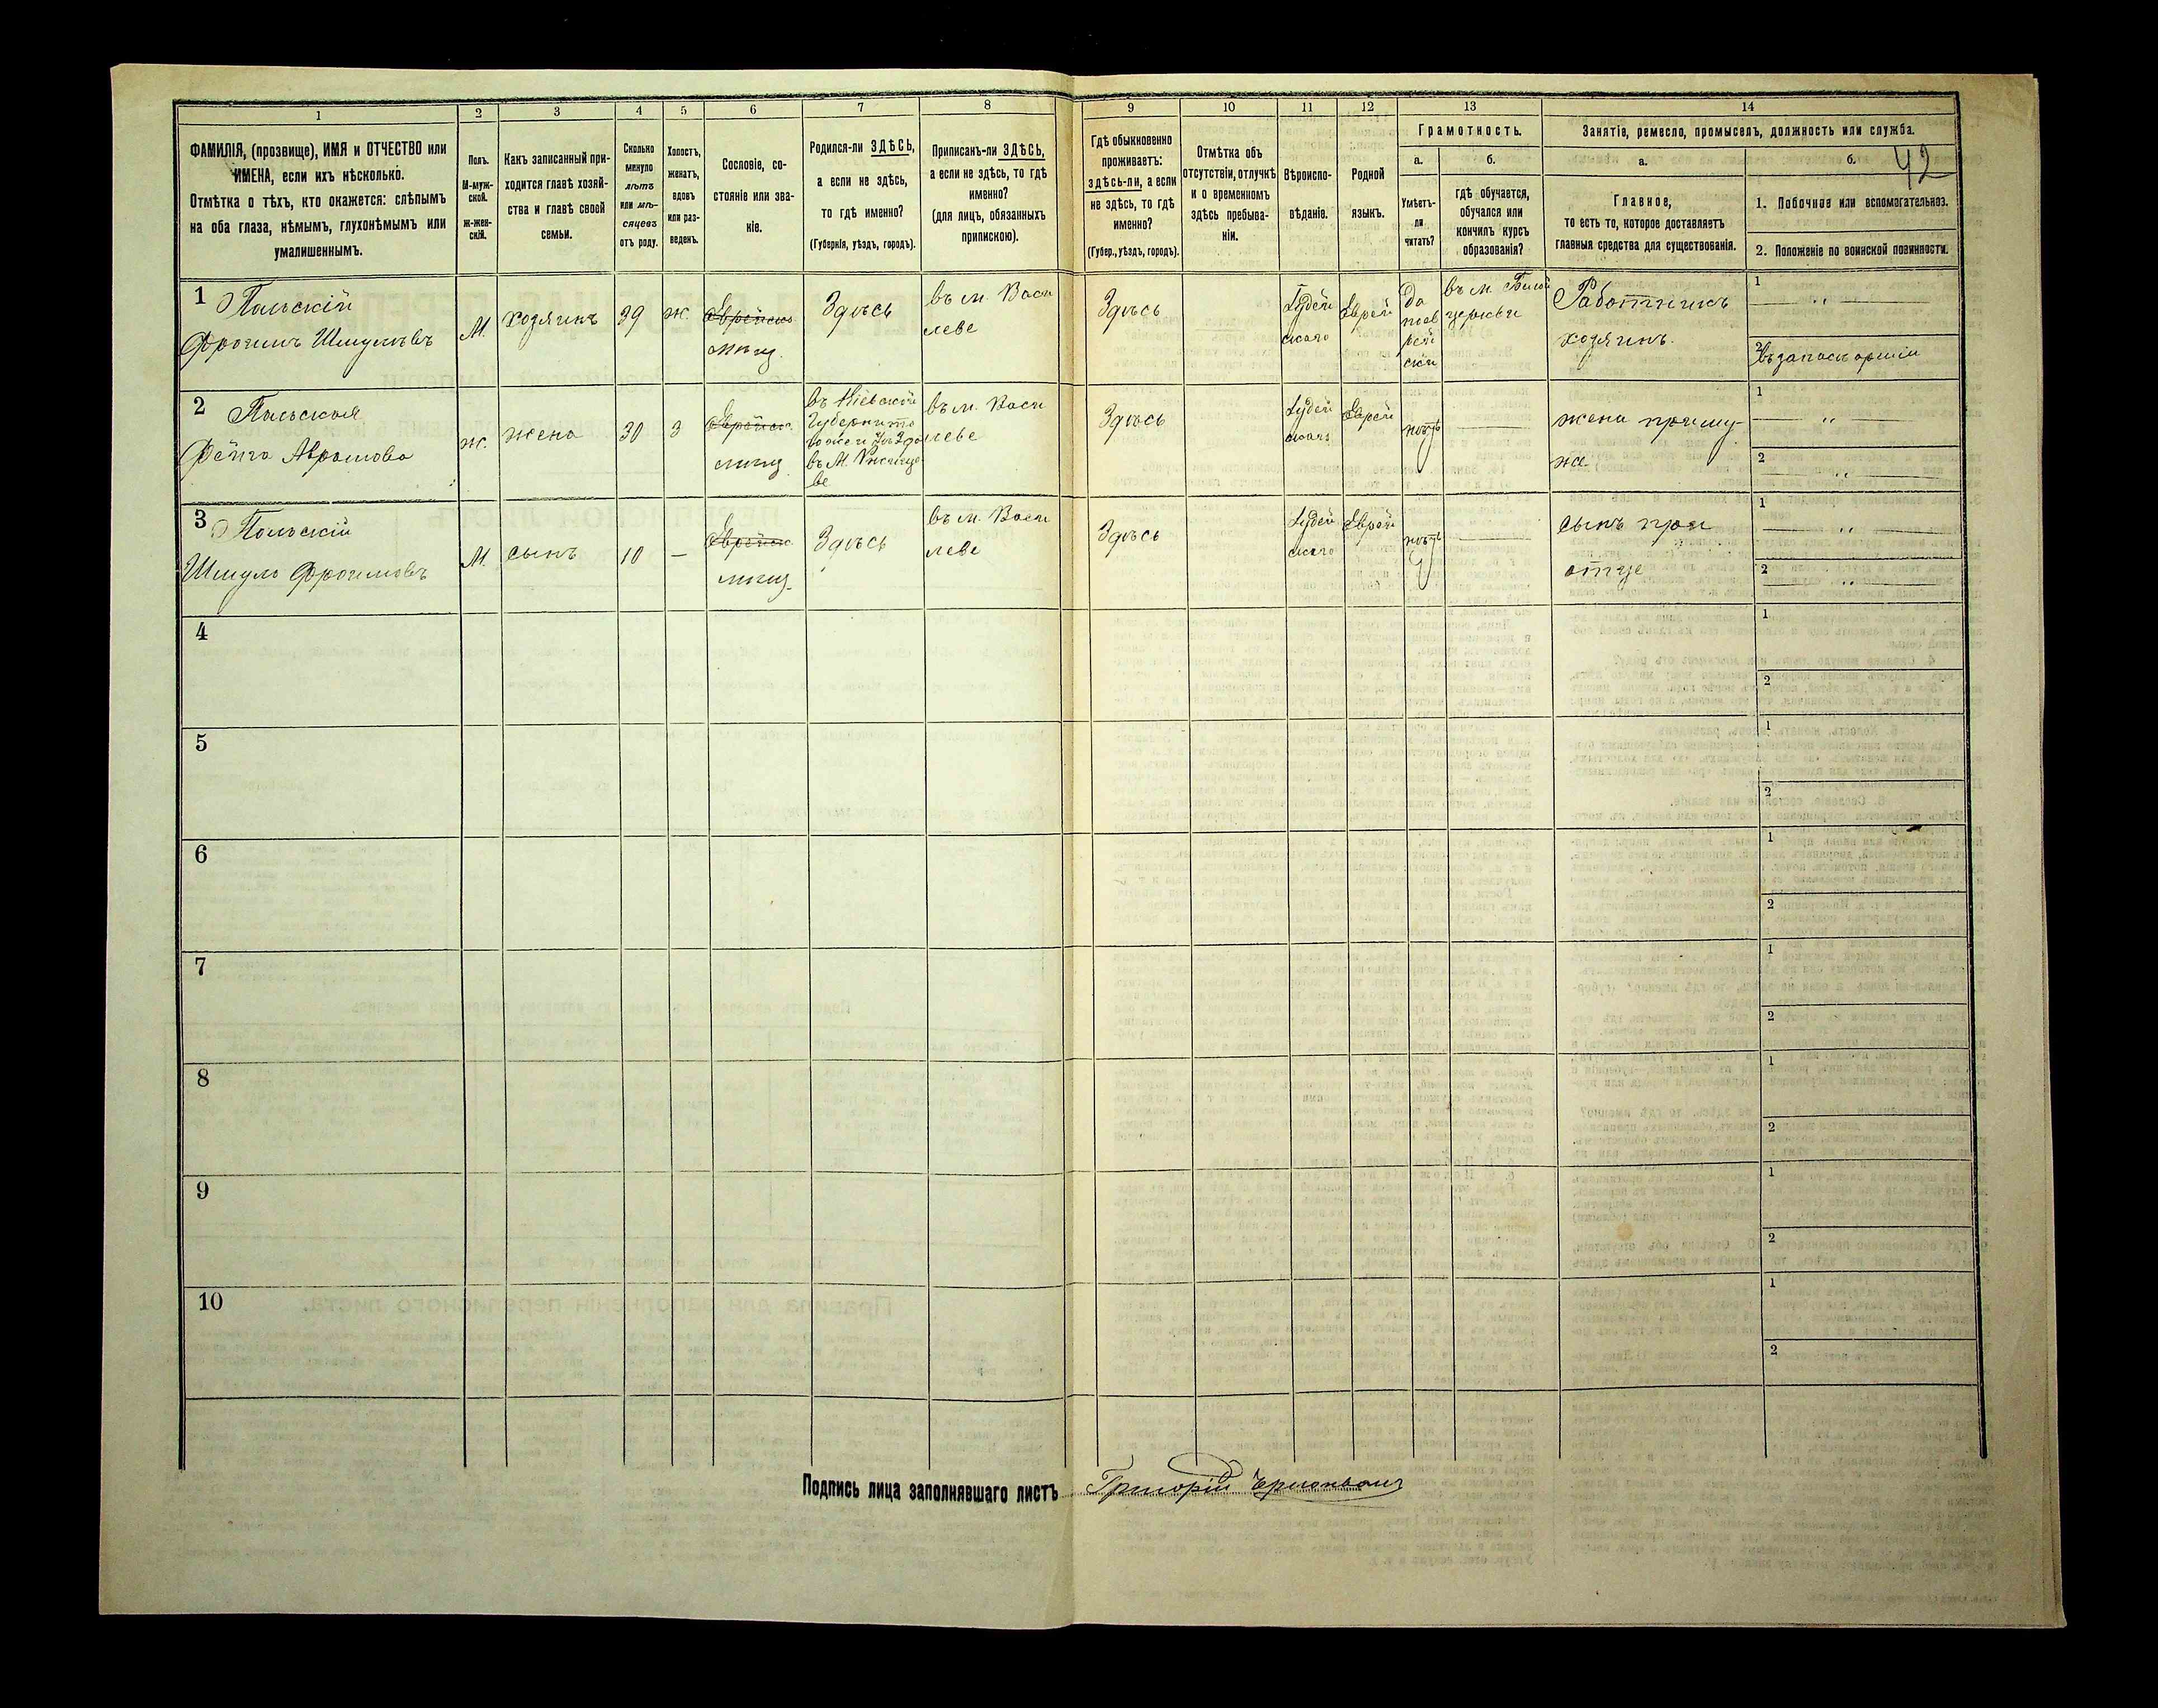 1
2
3
4
5
6
7
8
9
10
11
12
13
14
ФАМИЛІЯ, (прозвище), ИМЯ и ОТЧЕСТВО или
ИМЕНА, если ихъ нѣсколько.
Отмѣтка о тѣхъ, кто окажется: слѣпымъ
на оба глаза, нѣмымъ, глухонѣмымъ или
умалишеннымъ.
Полъ.
М-муж-
ской.
ж-жен-
скій.
Какъ записанный при-
ходится главѣ хозяй-
ства и главѣ своей
семьи.
Сколько
минуло
лѣтъ
или мѣ-
сяцевъ
отъ роду.
Холостъ,
женатъ,
вдовъ
или раз-
веденъ.
Сословіе, со-
стояніе или зва-
ніе.
Родился-ли ЗДѢСЬ,
а если не здѣсь,
то гдѣ именно?
(Губернія, уѣздъ, городъ).
Приписанъ-ли ЗДѢСЬ,
а если не здѣсь, то гдѣ
именно?
(для лицъ, обязанныхъ
припискою).
Гдѣ обыкновенно
проживаетъ:
здѣсь-ли, а если
не здѣсь, то гдѣ
именно?
(Губер., уѣздъ, городъ).
Отмѣтка объ
отсутствіи, отлучкѣ
и о временномъ
здѣсь пребыва-
ніи.
Вѣроиспо-
вѣданіе.
Родной
языкъ.
Грамотность.
а.
б.
Умѣетъ-
ли
читать?
гдѣ обучается,
обучался или
кончилъ курсъ
образованія?
Занятіе, ремесло, промыселъ, должность или служба.
а.
б.
42
Главное,
то есть то, которое доставляетъ
главныя средства для существованія.
1. Побочное или вспомогательное.
2. Положеніе по воинской повинности.
1
Польскій
Фроимъ Шмулевъ
М.
хозяинъ
39
ж.
мѣщ.
Здѣсь
въ м. Васи
леве
Здѣсь
Іудей
скаго
Еврей
да
по ев
рей
ски
въ м. Белой
церкви
Работникъ
хозяинъ.
1
2
въ запасъ арміи
2
Польская
Аврамова
ж.
жена
30
З
мѣщ
въ Кіевской
Губерніи
въ м. Васи
леве
Здѣсь
Іудей
скаго
Еврей
нѣтъ
жена при му-
же.
1
2
3
Польскій
Шмуло Фроимовъ
М.
сынъ
10
—
мѣщ.
Здѣсь
въ м. Васи
леве
Здѣсь
Іудей
скаго
Еврей
нѣтъ
сынъ при
отце
1
2
4
1
2
5
1
2
6
1
2
7
1
2
8
1
2
9
1
2
10
1
2
Подпись лица заполнявшаго листъ
Григорій